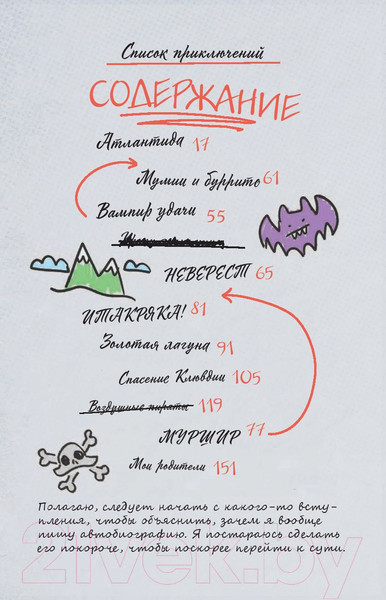 Список приключений
СОДЕРЖАНИЕ
Атлантида 17
Мумии и буррито 61
Вампир удачи 55
НЕВЕРЕСТ 65
ИТАКРЯКА! 81
Золотая лагуна 91
Спасение Клювдии 105
Воздушные пираты 119
МУРШИР 77
Мои родители 151
Полагаю, следует начать с какого-то всту-
пления, чтобы объяснить, зачем я вообще
пишу автобиографию. Я постараюсь сделать
его покороче, чтобы поскорее перейти к сути.
21vek.by